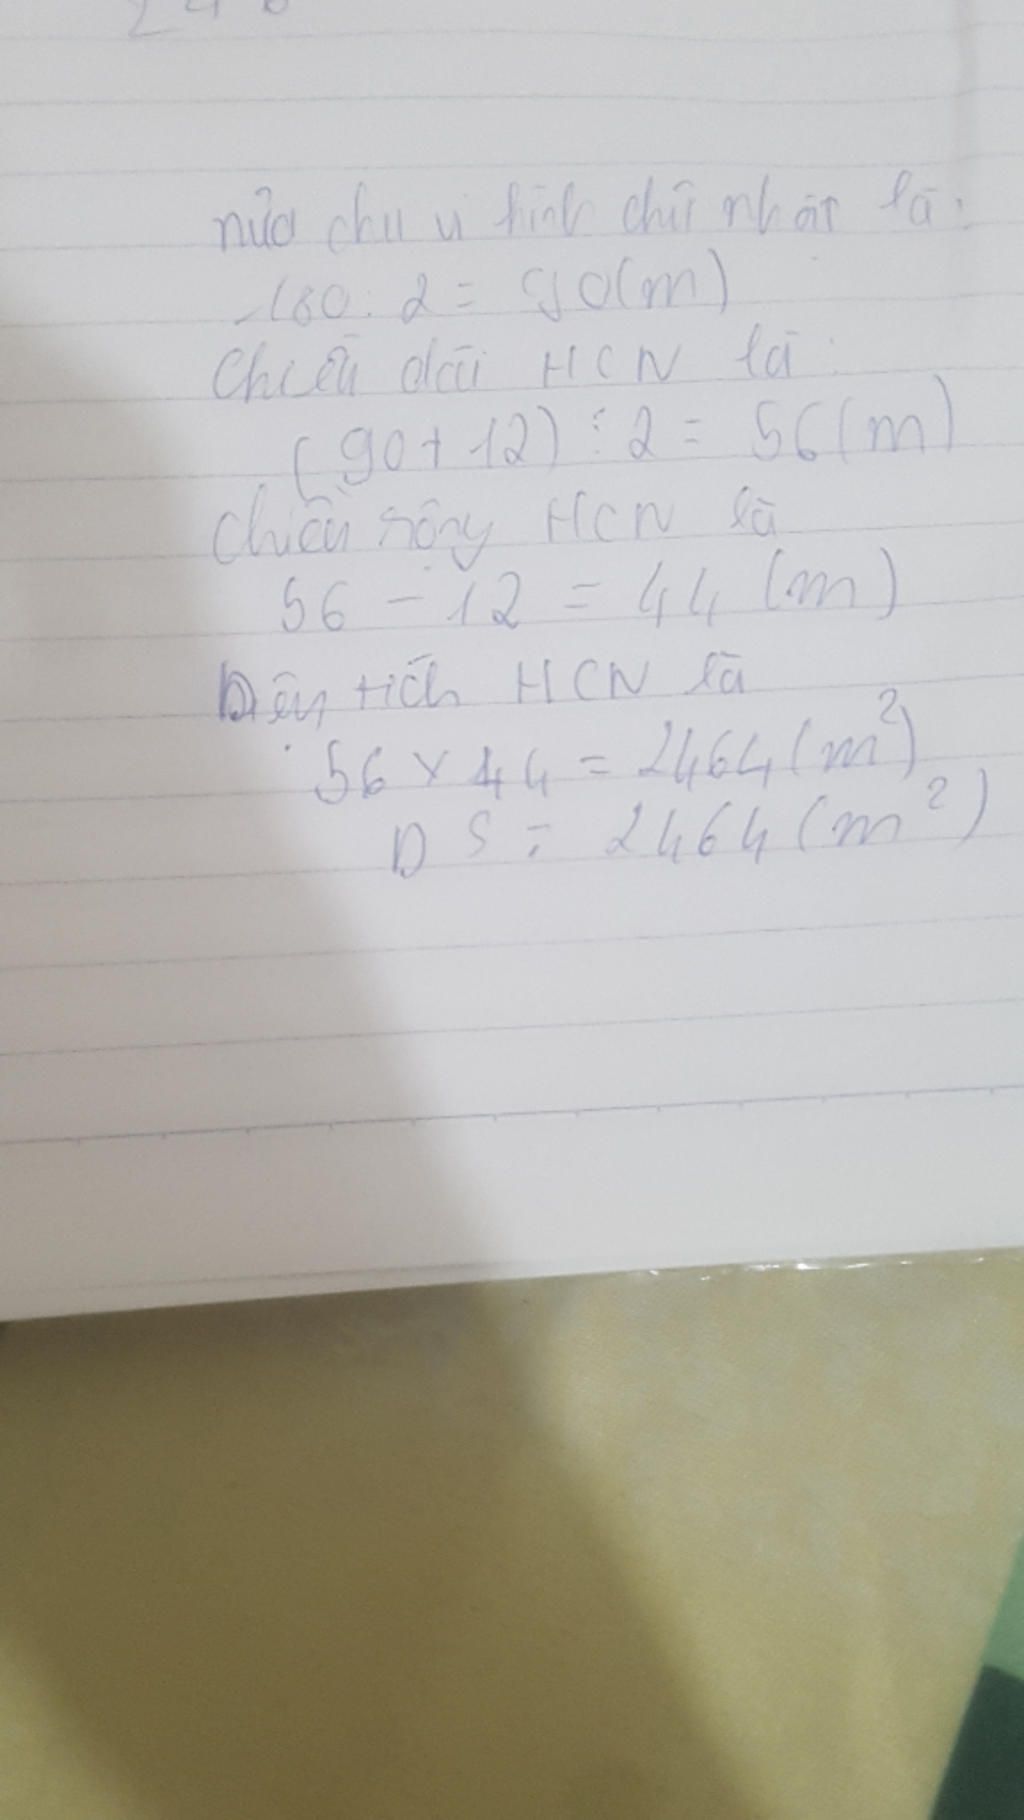 nửa chu vi hình chữ nhật là:
180 : 2 = 90 (m)
Chiều dài HCN là:
(90 + 12) : 2 = 56 (m)
Chiều rộng HCN là
56 - 12 = 44 (m)
Diện tích HCN là
56 x 44 = 2464 (m²)
DS: 2464 (m²)